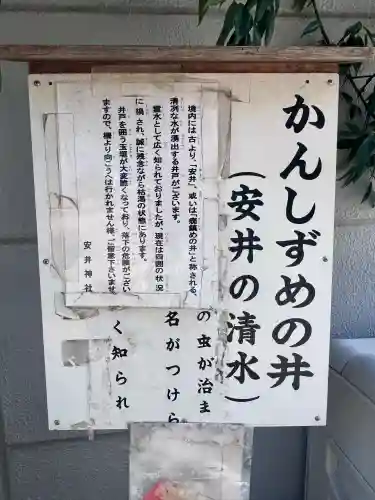 かんしずめの井
（安井の清水）
境内には古より、「安井」、或いは「癇鎮めの井」と称される、
清冽な水が湧出する井戸がございます。
霊水として広く知られておりましたが、現在は周囲の状況
に煽され、誠に残念ながら枯渇の状態にあります。
井戸を囲う玉垣が大変脆くなっており、落下の危険がござい
ますので、柵より向こうへは行かれません様、ご留意下さいませ。
安井神社
の虫が治ま
名がつけら
く知られ